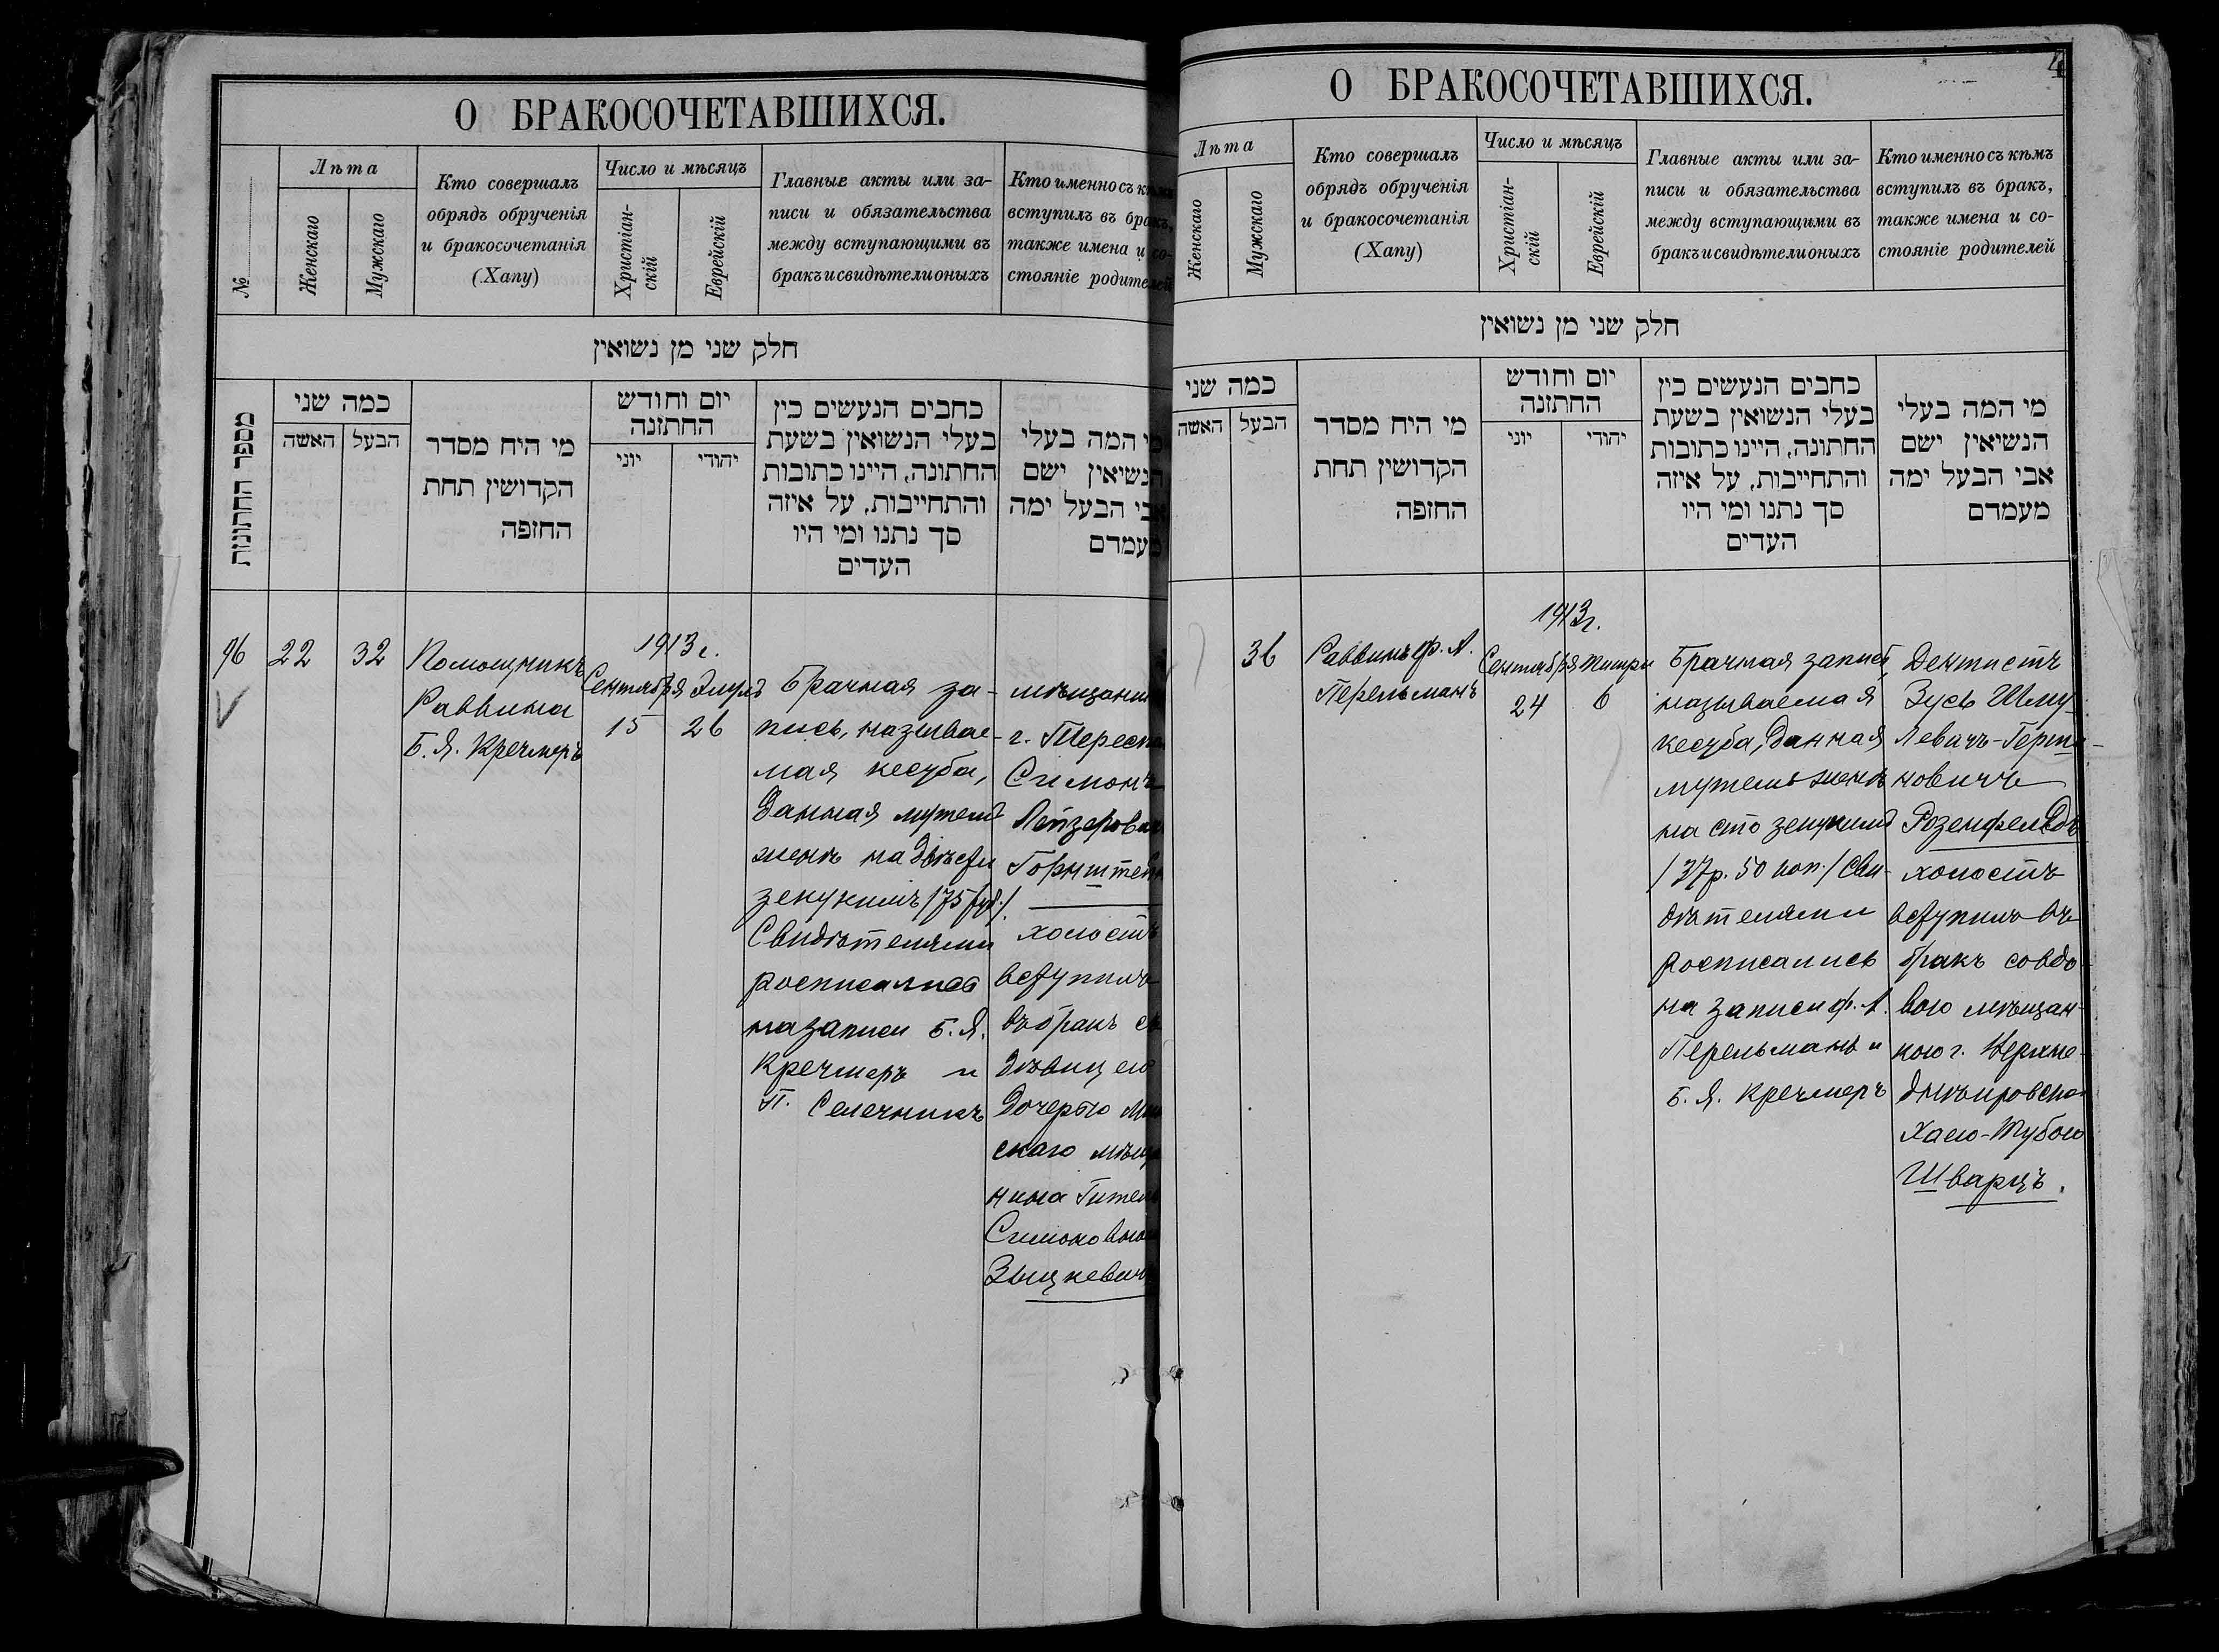 О БРАКОСОЧЕТАВШИХСЯ.
№
Лѣта
Женскаго
Мужскаго
Кто совершалъ
обрядъ обрученія
и бракосочетанія
(Хапу)
Число и мѣсяцъ
Христіан-
скій
Еврейскій
Главные акты или за-
писи и обязательства
между вступающими въ
бракъ и свидѣтели оныхъ
Кто именно съ кѣмъ
вступилъ въ бракъ,
также имена и со-
стояніе родителей
חלק שני מן נשואין
מספר החתונות
כמה שני
האשה
הבעל
מי היח מסדר
הקדושין תחת
החופה
יום וחודש
החתונה
יוני
יהודי
כחבים הנעשים כין
בעלי הנשואין בשעת
החתונה, היינו כתובות
והתחייבות, על איזה
סך נתנו ומי היו
העדים
מי המה בעלי
הנשיאין ישם
אבי הבעל ימה
מעמדם
96
22
32
Помощникъ
Раввина
Б. Я. Кречмеръ
1913 г.
Сентября
15
Элулъ
26
Брачная за-
пись, называе-
мая кесуба,
данная мужемъ
женѣ на двѣсти
зекукимъ /75 руб./.
Свидѣтелями
росписались
на записи Б. Я.
Кречмеръ и
П. Селечникъ
мѣщанинъ
г. Тересп
Симонъ
Лейзеровичъ
Горнштейн
холостъ
вступилъ
въ бракъ съ
дѣвицею
дочерью Мин
скаго мѣща
нина Гител
Симоновною
Зыцкевичъ
О БРАКОСОЧЕТАВШИХСЯ.
4
Лѣта
Женскаго
Мужскаго
Кто совершалъ
обрядъ обрученія
и бракосочетанія
(Хапу)
Число и мѣсяцъ
Христіан-
скій
Еврейскій
Главные акты или за-
писи и обязательства
между вступающими въ
бракъ и свидѣтели оныхъ
Кто именно съ кѣмъ
вступилъ въ бракъ,
также имена и со-
стояніе родителей
חלק שני מן נשואין
כמה שני
האשה
הבעל
מי היח מסדר
הקדושין תחת
החופה
יום וחודש
החתונה
יוני
יהודי
כחבים הנעשים כין
בעלי הנשואין בשעת
החתונה, היינו כתובות
והתחייבות, על איזה
סך נתנו ומי היו
העדים
מי המה בעלי
הנשיאין ישם
אבי הבעל ימה
מעמדם
36
Раввинъ Ф. А.
Перельманъ
1913 г.
Сентября
24
Тишри
6
Брачная запись,
называемая
кесуба, данная
мужемъ женѣ
на сто зекукимъ
/37 р. 50 коп./ Сви-
дѣтелями
росписались
на записи Ф. А.
Перельманъ и
Б. Я. Кречмеръ
Дентистъ
Зусь Шму
Левачъ-Герша-
новичъ
Розенфельдъ
холостъ
вступилъ въ
бракъ со вдо-
вою мѣщан-
кою г. Верхне-
днѣпровска
Хаею-Тубою
Шварцъ.